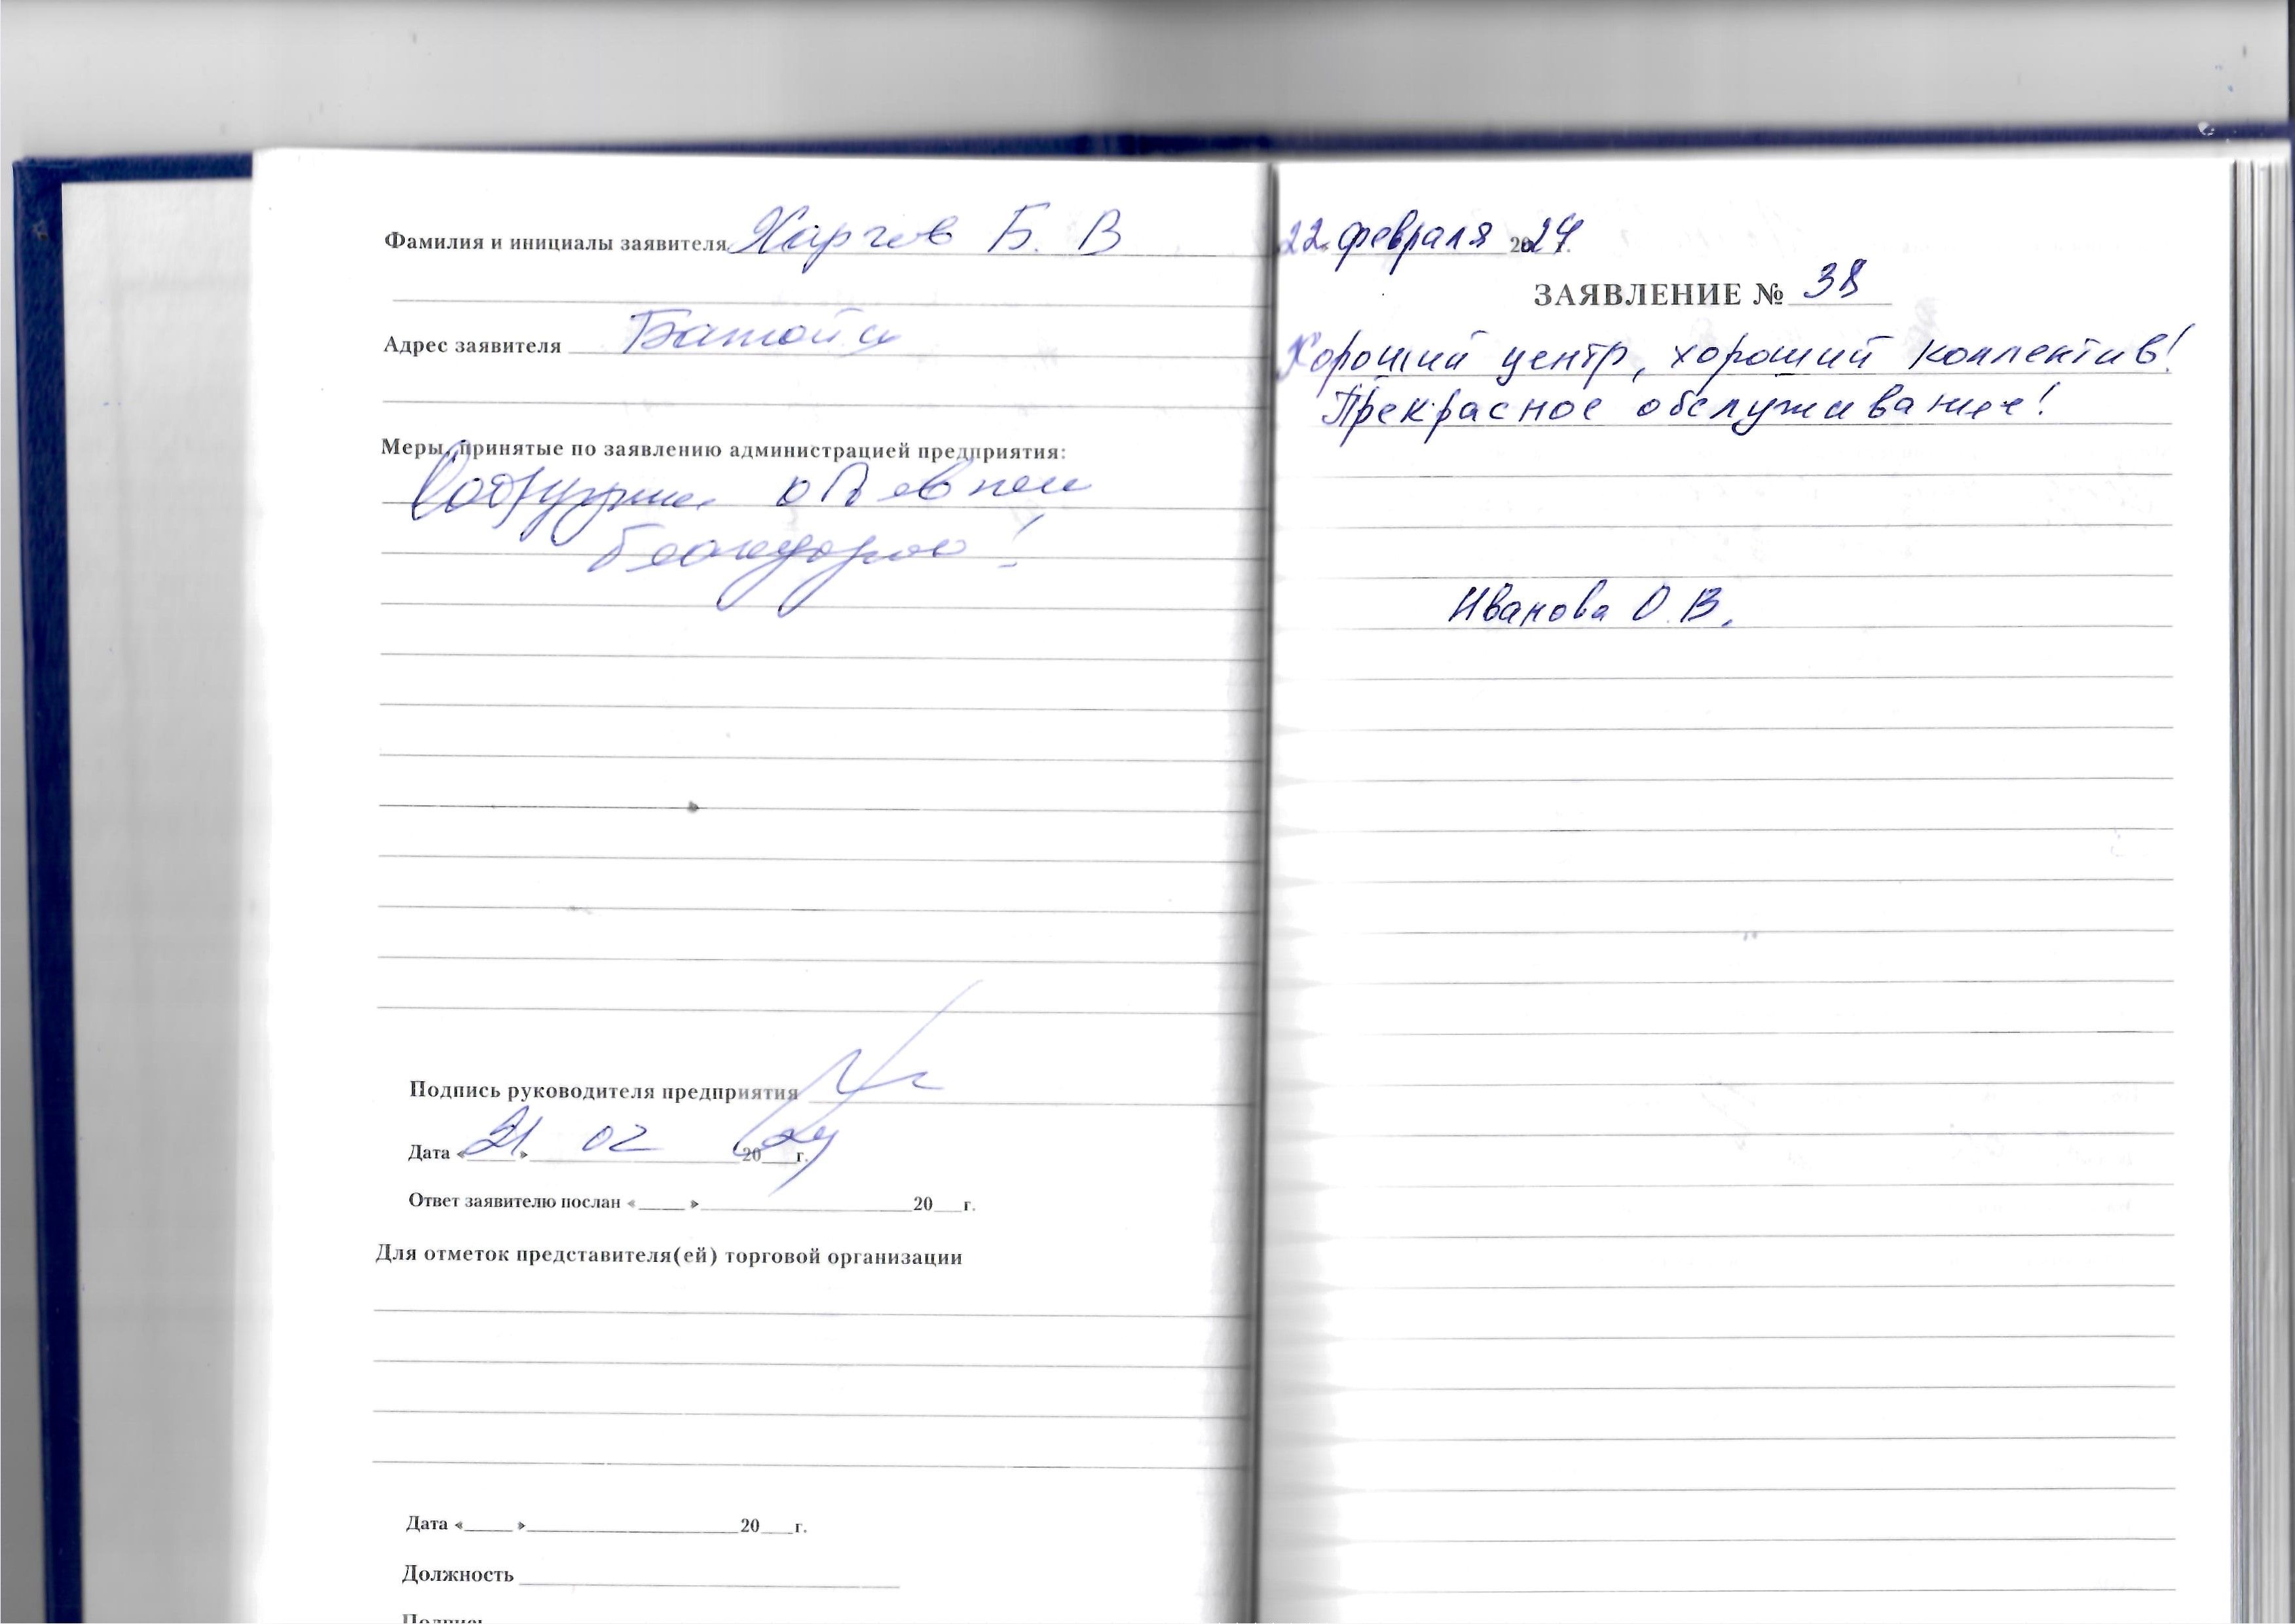 Фамилия и инициалы заявителя Харчев Б. В
Адрес заявителя
Меры, принятые по заявлению администрацией предприятия:
Подпись руководителя предприятия
Дата «21» 02 2024 г.
Ответ заявителю послан «____» ____ 20___г.
Для отметок представителя(ей) торговой организации
Дата «____» ____ 20___г.
Должность
Подпись
22 февраля 2024 г.
ЗАЯВЛЕНИЕ № 38
Хороший центр, хороший коллектив!
Прекрасное обслуживание!
Иванова О.В.